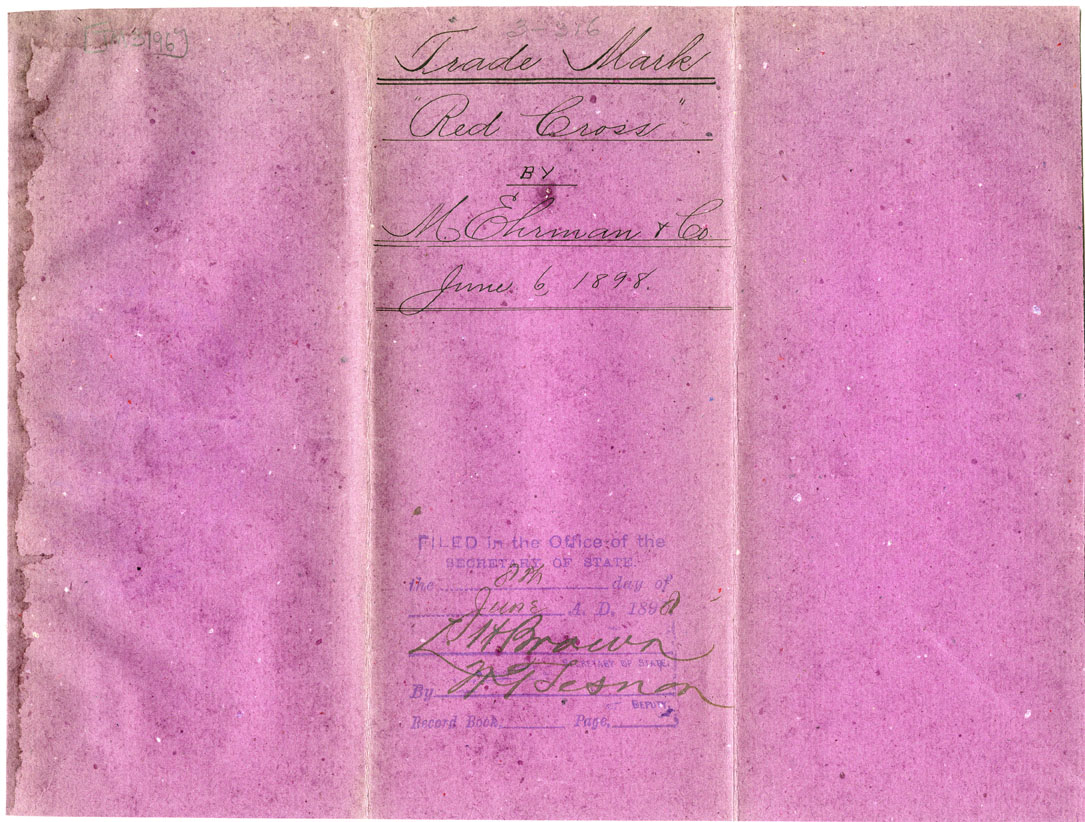 3-376
Trade Mark
"Red Cross"
BY
M Ehrman & Co
June 6, 1898.
FILED in the Office of the
SECRETARY OF STATE
the 8th day of
June A. D. 1898
L H Brown
SECRETARY OF STATE
By
DEPUTY.
Record Book Page,